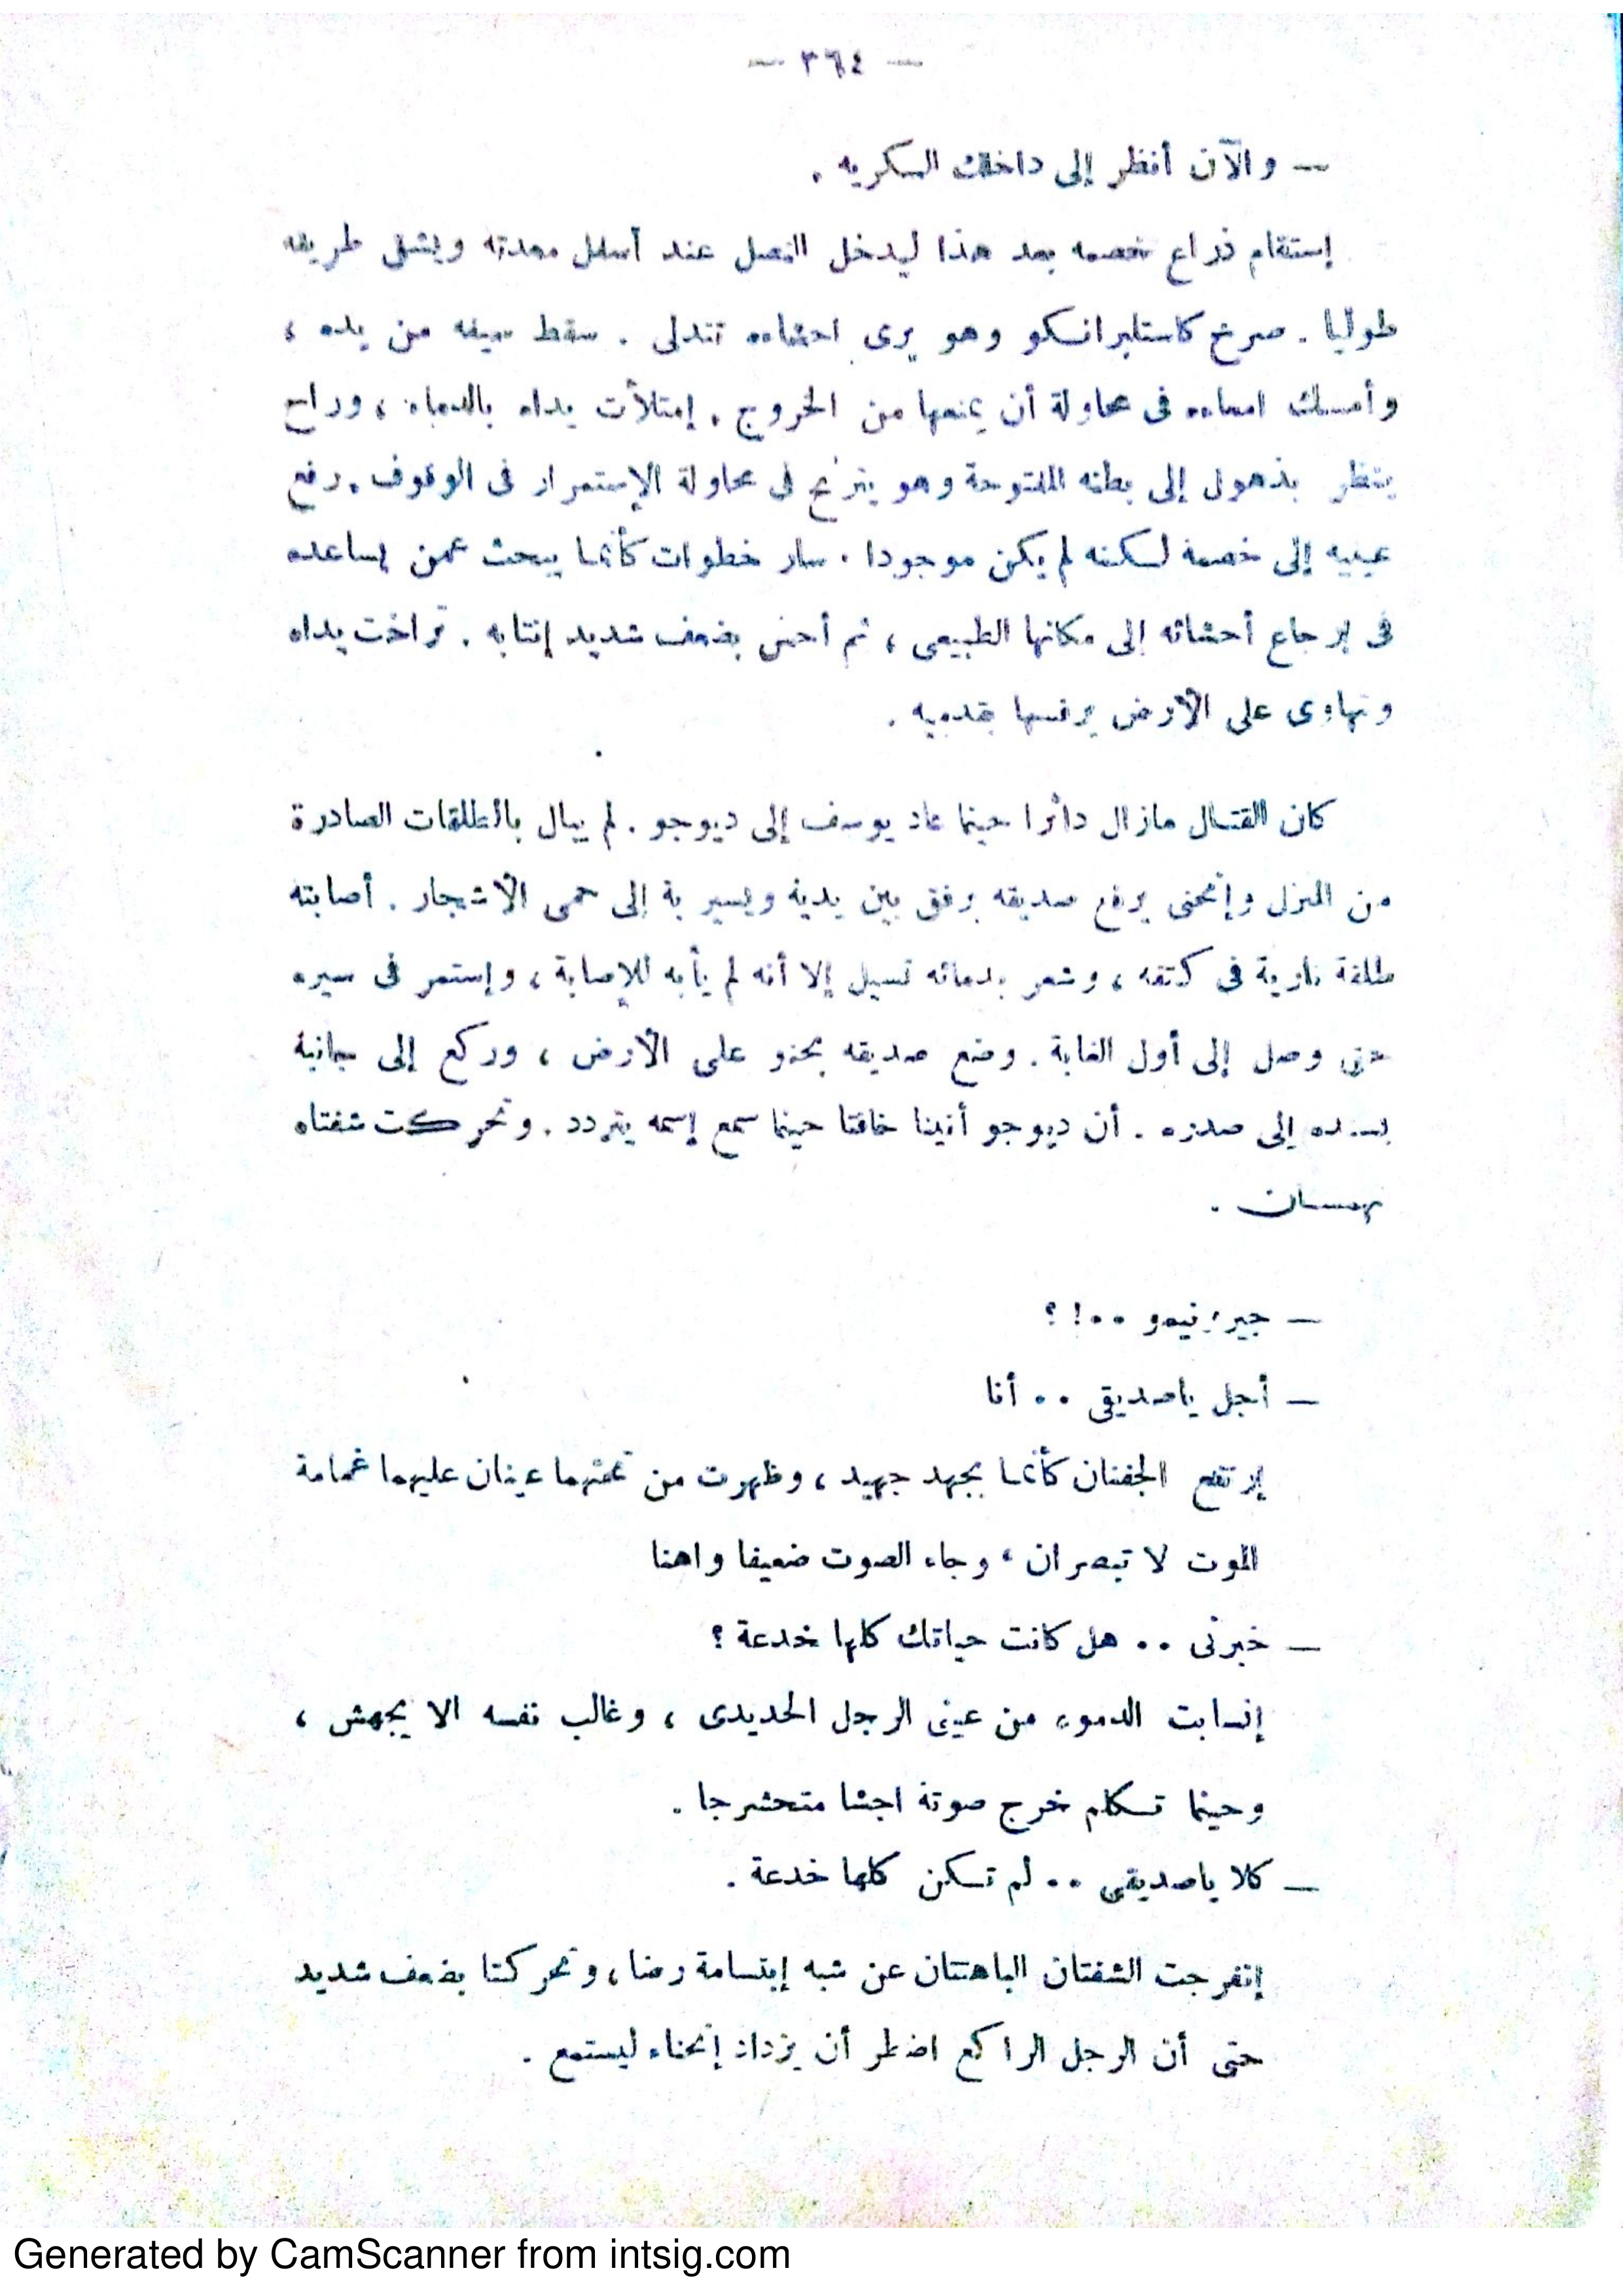 — ٣٦٤ —
— والآن أنظر إلى داخلك الكريه .
إستقام ذراع خصمه بعد هذا ليدخل النصل عند أسفل معدته ويشق طريقه
طوليا . صرخ كاستلبرانكو وهو يرى احشاءه تتدلى . سقط سيفه من يده ،
وأمسك امعاءه فى محاولة أن يمنعها من الخروج . إمتلأت يداه بالدماء ، وراح
ينظر بذهول إلى بطنه المفتوحة وهو يترنح فى محاولة الإستمرار فى الوقوف . رفع
عينيه إلى خصمة لكنه لم يكن موجودا . سار خطوات كأنما يبحث عمن يساعده
فى إرجاع أحشائه إلى مكانها الطبيعى ، ثم أحس بضعف شديد إنتابه . تراخت يداه
وتهاوى على الأرض يرفسها بقدميه .
كان القتال مازال دائرا حينما عاد يوسف إلى ديوجو . لم يبال بالطلقات الصادرة
من المنزل وإنحنى يرفع صديقه برفق بين يدية ويسير بة إلى حمى الأشجار . أصابته
طلقة نارية فى كتفه ، وشعر بدمائه تسيل إلا أنه لم يأبه للإصابة ، وإستمر فى سيره
حتى وصل إلى أول الغابة . وضع صديقه بحنو على الأرض ، وركع إلى جانبة
يسنده إلى صدره . أن ديوجو أنينا خافتا حينما سمع إسمه يتردد . وتحركت شفتاه
تهمسان .
— جيرونيمو ..! ؟
— أجل ياصديقى .. أنا
إرتفع الجفنان كأنما بجهد جهيد ، وظهرت من تحتهما عينان عليهما غمامة
الموت لا تبصران ، وجاء الصوت ضعيفا واهنا
— خبرنى .. هل كانت حياتك كلها خدعة ؟
إنسابت الدموع من عينى الرجل الحديدى ، وغالب نفسه الا يجهش ،
وحينما تكلم خرج صوتة اجشا متحشرجا .
— كلا ياصديقى .. لم تكن كلها خدعة .
إنفرجت الشفتان الباهتتان عن شبه إبتسامة رضا ، وتحركتا بضعف شديد
حتى أن الرجل الراكع اضطر أن يزداد إنحناء ليستمع .
Generated by CamScanner from intsig.com